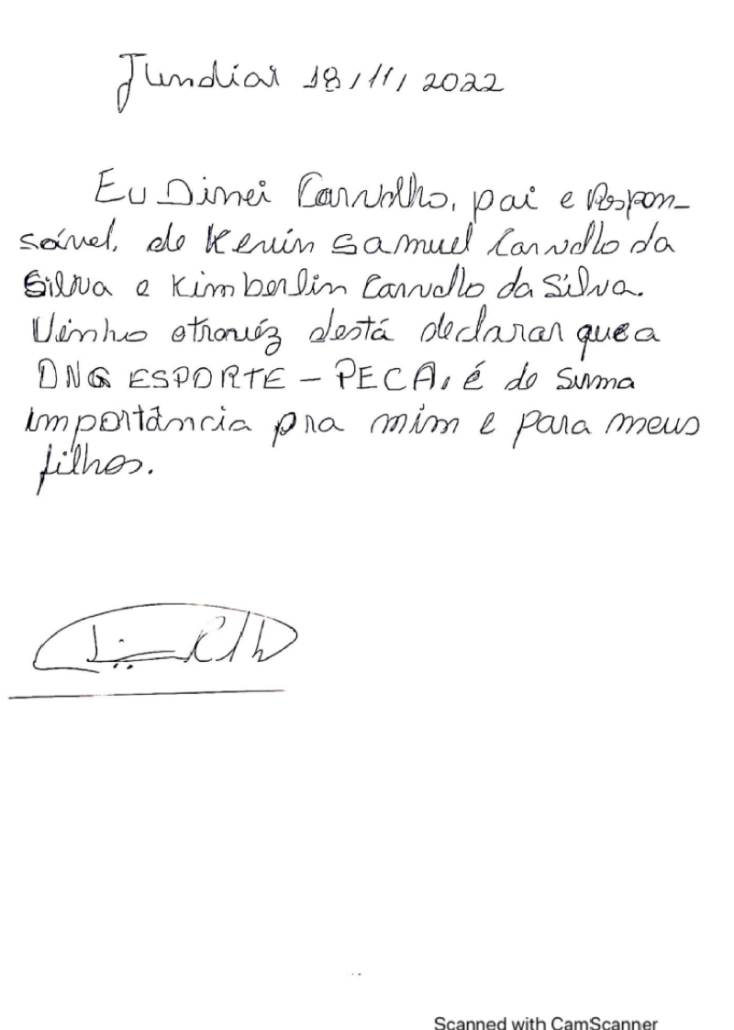 Jundiai 18/11/2022
Eu Dinei Carvalho, pai e Respon-
sável, de Kevin Samuel Carvalho da
Silva e Kimberlin Carvalho da Silva.
Venho atravéz destá declarar que a
DNG ESPORTE - PECA, é de suma
importância pra mim e para meus
filhos.
Scanned with CamScanner